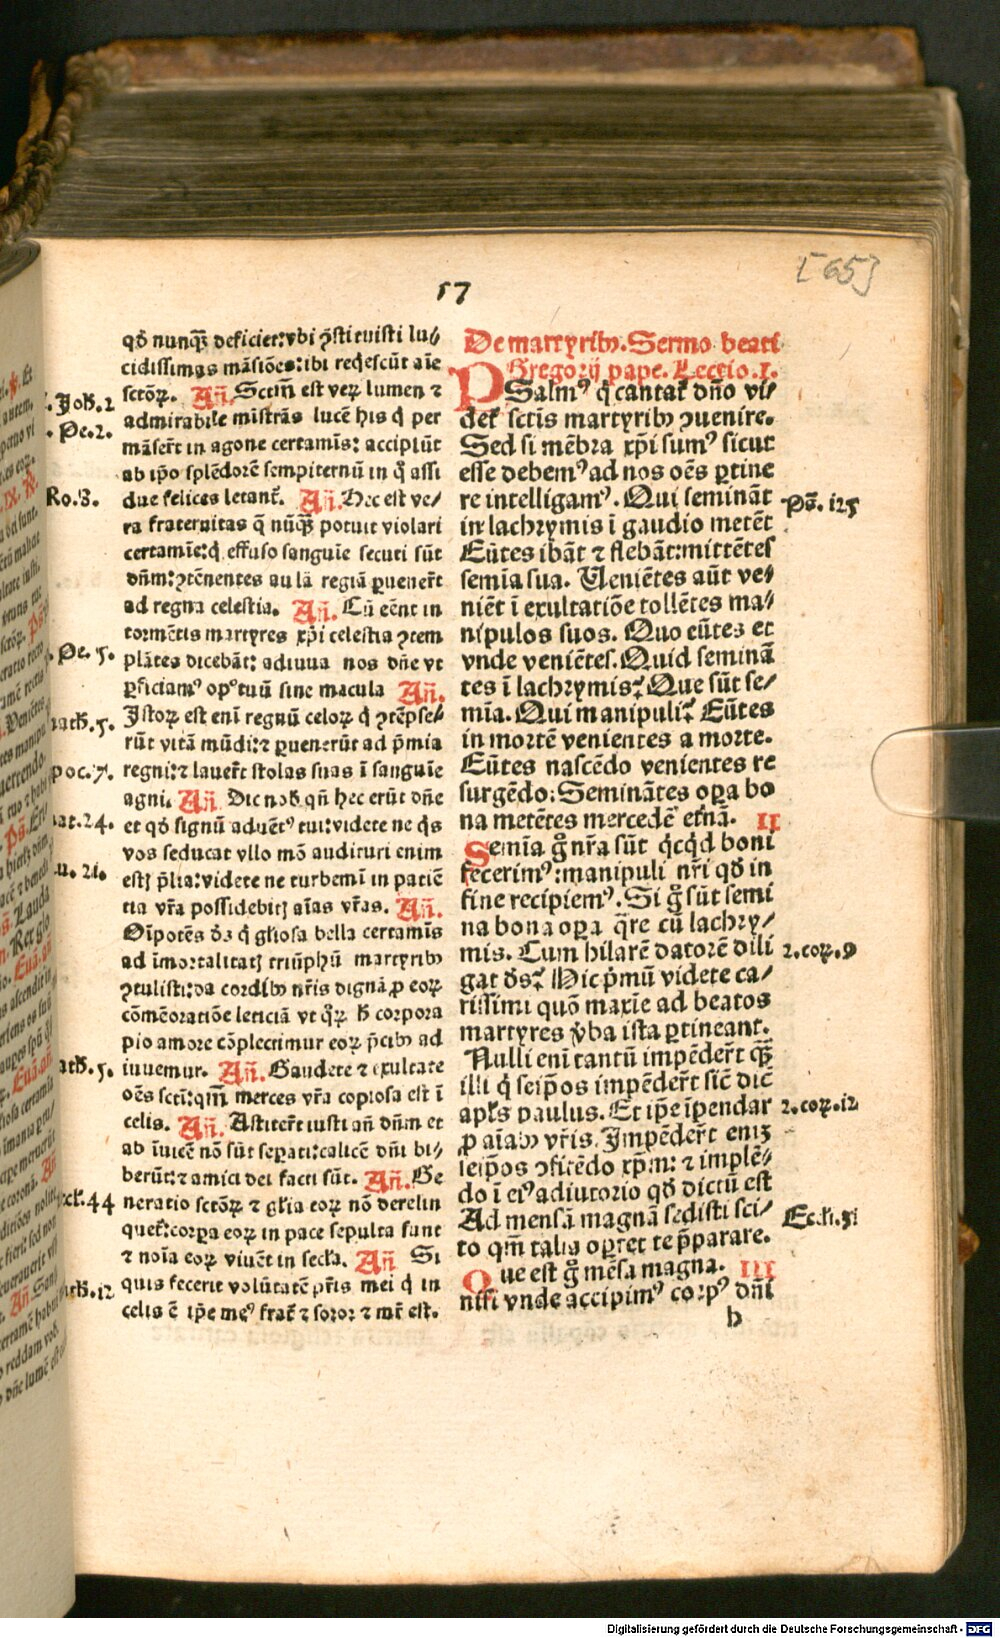 17
[65]
qd nunq̃ deficiet: vbi ꝯstituisti lu⸗
cidissimas mãsiões: ibi reqͥescũt aĩe
sctõꝝ. Añ. Sctim̃ est veꝝ lumen ⁊
admirabile mistrãs lucẽ his qͥ per
mãserͭt in agone certamĩs: accipiũt
ab ip̃o splẽdorẽ sempiternũ in qͦ assi
due felices letant᷑. Añ. Hec est ve⸗
ra fraternitas q̃ nũqͣꝫ potuit violari
certamĩe: qͥ effuso sanguĩe secuti sũt
dñm: ꝯtẽnentes aulã regiã ꝑuenerͭt
ad regna celestia. Añ. Cũ eẽnt in
tormẽtis martyres xp̃i celestia ꝯtem
plãtes dicebãt: adiuua nos dñe vt
ꝑficiamꝰ opꝰ tuũ sine macula Añ.
Istoꝝ est enĩ regnũ celoꝝ qͥ ꝯtẽpse⸗
rũt vitã mũdi: ⁊ ꝑuenerũt ad p̃mia
regni: ⁊ lauerͭt stolas suas ĩ sanguĩe
agni. Añ. Dic nob̃ qñ hec erũt dñe
et qd signũ aduẽtꝰ tui: videte ne qͥs
vos seducat vllo mõ audituri enim
estꝭ p̃lia: videte ne turbemĩ in patiẽ
tia vr̃a possidebitꝭ aĩas vr̃as. Añ.
Oĩpotẽs ds qͥ gl̃iosa bella certamĩs
ad ĩmortalitatꝭ triũphũ martyribꝫ
ꝯtulisti: da cordibꝫ nr̃is dignã ꝓ eoꝝ
cõmẽoratiõe leticiã vt qͦꝝ h̃ corpora
pio amore cõplectimur eoꝝ p̃cibꝫ ad
iuuemur. Añ. Gaudete ⁊ exultate
oẽs scti: qm̃ merces vr̃a copiosa est ĩ
celis. Añ. Astiterͭt iusti añ dñm et
ab ĩuicẽ nõ sũt sepati: calicẽ dñi bi⸗
berũt: ⁊ amici dei facti sũt. Añ. Ge
neratio sctõꝝ ⁊ gl̃ia eoꝝ nõ derelin
quet᷑: corꝑa eoꝝ in pace sepulta sunt
⁊ noĩa eoꝝ viuẽt in secl̃a. Añ Si
quis fecerit volũtatẽ pr̃is mei qͥ in
celis ẽ ip̃e meꝰ frat᷑ ⁊ soror ⁊ mr̃ est.
Joh. 2
Pe. 2.
Ro. 8.
Pe. 5.
ath. 5.
poc. 7.
at. 24.
u. 21.
ath. 5.
ccl. 44
ath. 12
De martyribꝫ. Sermo beati
Gregorij pape. Lectio. I.
PSalmꝰ qͥ cantat᷑ dño vi⸗
det᷑ sctis martyribꝫ ꝯuenire.
Sed si mẽbra xp̃i sumꝰ sicut
esse debemꝰ ad nos oẽs ꝑtine
re intelligamꝰ. Qui seminãt
in lachrymis ĩ gaudio metẽt
Eũtes ibãt ⁊ flebãt: mittẽtes
semĩa sua. Ueniẽtes aũt ve⸗
niẽt ĩ exultatiõe tollẽtes ma⸗
nipulos suos. Quo eũtes et
vnde veniẽtes. Quid seminã
tes ĩ lachrymis? Que sũt se⸗
mĩa. Qui manipuli? Eũtes
in mortẽ venientes a morte.
Eũtes nascẽdo venientes re
surgẽdo: Seminãtes oꝑa bo
na metẽtes mercedẽ et̃nã. II
Semĩa gͦ nr̃a sũt qͥcqͥd boni
fecerimꝰ: manipuli nr̃i qd in
fine recipiemꝰ. Si gͦ sũt semi
na bona oꝑa q̃re cũ lachry⸗
mis. Cum hilarẽ datorẽ dili
gat ds? Hic pͥmũ videte ca⸗
rissimi quõ maxĩe ad beatos
martyres v̾ba ista ꝑtineant.
Nulli enĩ tantũ impẽderͭt qͣꝫ
illi qͥ seip̃os impẽderͭt sicͭ dicͭ
apl̃s paulus. Et ip̃e ĩpendar
ꝓ aĩabꝫ vr̃is. Impẽderͭt eniꝫ
seip̃os ꝯfitẽdo xp̃m: ⁊ implẽ⸗
do ĩ eiꝰ adiutorio qd dictũ est
Ad mensã magnã sedisti sci⸗
to qm̃ talia oꝑtet te p̃parare.
Que est gͦ mẽsa magna. III
nisi vnde accipimꝰ corpꝰ dñi
h
Ps̃. 125
2. coꝝ. 9
2. coꝝ. 12
Eccli. 31
Digitalisierung gefördert durch die Deutsche Forschungsgemeinschaft - DFG